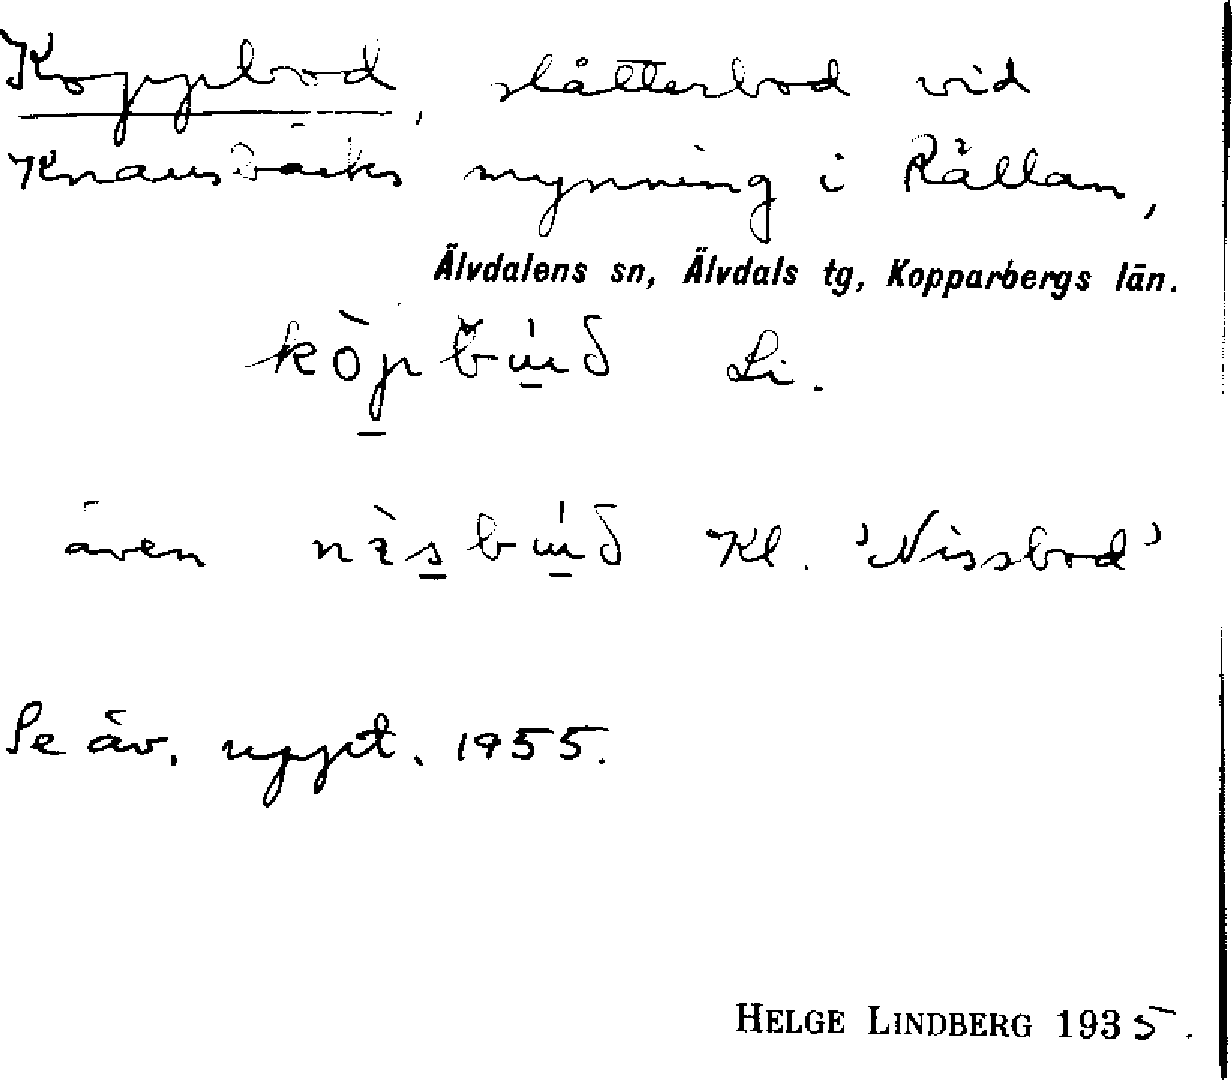 Koppbod, slåtterbod vid
Knausbäcks mynning i Rällan,
Älvdalens sn, Älvdals tg, Kopparbergs län.
Li.
även Kl. 'Nissbod'
Se äv. uppt. 1955.
HELGE LINDBERG 1935.